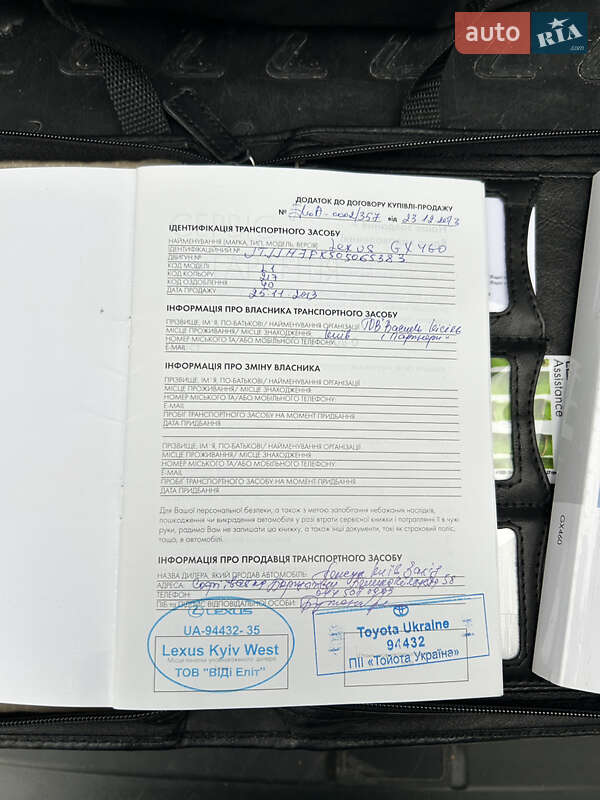 auto RIA.com
ДОДАТОК ДО ДОГОВОРУ КУПІВЛІ-ПРОДАЖУ
№ -0002/357 від 23 12 2013
ІДЕНТИФІКАЦІЯ ТРАНСПОРТНОГО ЗАСОБУ
НАЙМЕНУВАННЯ (МАРКА, ТИП, МОДЕЛЬ, ВЕРСІЯ) Lexus GX460
ІДЕНТИФІКАЦІЙНИЙ №
ДВИГУН №
КОД МОДЕЛІ
КОД КОЛЬОРУ 217
КОД ОЗДОБЛЕННЯ 40
ДАТА ПРОДАЖУ 25.11 2013
ІНФОРМАЦІЯ ПРО ВЛАСНИКА ТРАНСПОРТНОГО ЗАСОБУ
ПРІЗВИЩЕ, ІМ'Я, ПО-БАТЬКОВІ/ НАЙМЕНУВАННЯ ОРГАНІЗАЦІЇ ТОВ Василь Кісіль
МІСЦЕ ПРОЖИВАННЯ/ МІСЦЕ ЗНАХОДЖЕННЯ: Київ і Партнери"
НОМЕР МІСЬКОГО ТА/АБО МОБІЛЬНОГО ТЕЛЕФОНУ:
E-MAIL
ІНФОРМАЦІЯ ПРО ЗМІНУ ВЛАСНИКА
ПРІЗВИЩЕ, ІМ'Я, ПО-БАТЬКОВІ/ НАЙМЕНУВАННЯ ОРГАНІЗАЦІЇ
МІСЦЕ ПРОЖИВАННЯ/ МІСЦЕ ЗНАХОДЖЕННЯ:
НОМЕР МІСЬКОГО ТА/АБО МОБІЛЬНОГО ТЕЛЕФОНУ:
E-MAIL
ПРОБІГ ТРАНСПОРТНОГО ЗАСОБУ НА МОМЕНТ ПРИДБАННЯ
ДАТА ПРИДБАННЯ
ПРІЗВИЩЕ, ІМ'Я, ПО-БАТЬКОВІ/ НАЙМЕНУВАННЯ ОРГАНІЗАЦІЇ
МІСЦЕ ПРОЖИВАННЯ/ МІСЦЕ ЗНАХОДЖЕННЯ:
НОМЕР МІСЬКОГО ТА/АБО МОБІЛЬНОГО ТЕЛЕФОНУ:
E-MAIL
ПРОБІГ ТРАНСПОРТНОГО ЗАСОБУ НА МОМЕНТ ПРИДБАННЯ
ДАТА ПРИДБАННЯ
Для Вашої персональної безпеки, а також з метою запобігання небажаних наслідків,
пошкодження чи викрадення автомобіля у разі втрати сервісної книжки і потраплянні її в чужі
руки, радимо Вам не залишати цю книжку, а також інші документи, такі як страховий поліс,
тощо, в автомобілі.
ІНФОРМАЦІЯ ПРО ПРОДАВЦЯ ТРАНСПОРТНОГО ЗАСОБУ
НАЗВА ДИЛЕРА, ЯКИЙ ПРОДАВ АВТОМОБІЛЬ: Лексус Київ Захід
АДРЕСА: 58
ТЕЛЕФОН:
ПІБ ТА ПІДПИС ВІДПОВІДАЛЬНОЇ ОСОБИ:
LEXUS
UA-94432- 35
Lexus Kyiv West
Місце печатки уповноваженого дилера
ТОВ "ВІДІ Еліт"
Toyota Ukraine
94432
ПІІ «Тойота Україна»
Assistance
GX460